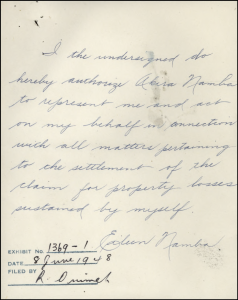 I the undersigned do
hereby authorize Akira Namba
to represent me and act
on my behalf in connection
with all matters pertaining
to the settlement of the
claim for property losses
sustained by myself.
Eileen Namba.
EXHIBIT No. 1369-1
DATE 8 June 1948
FILED BY R.